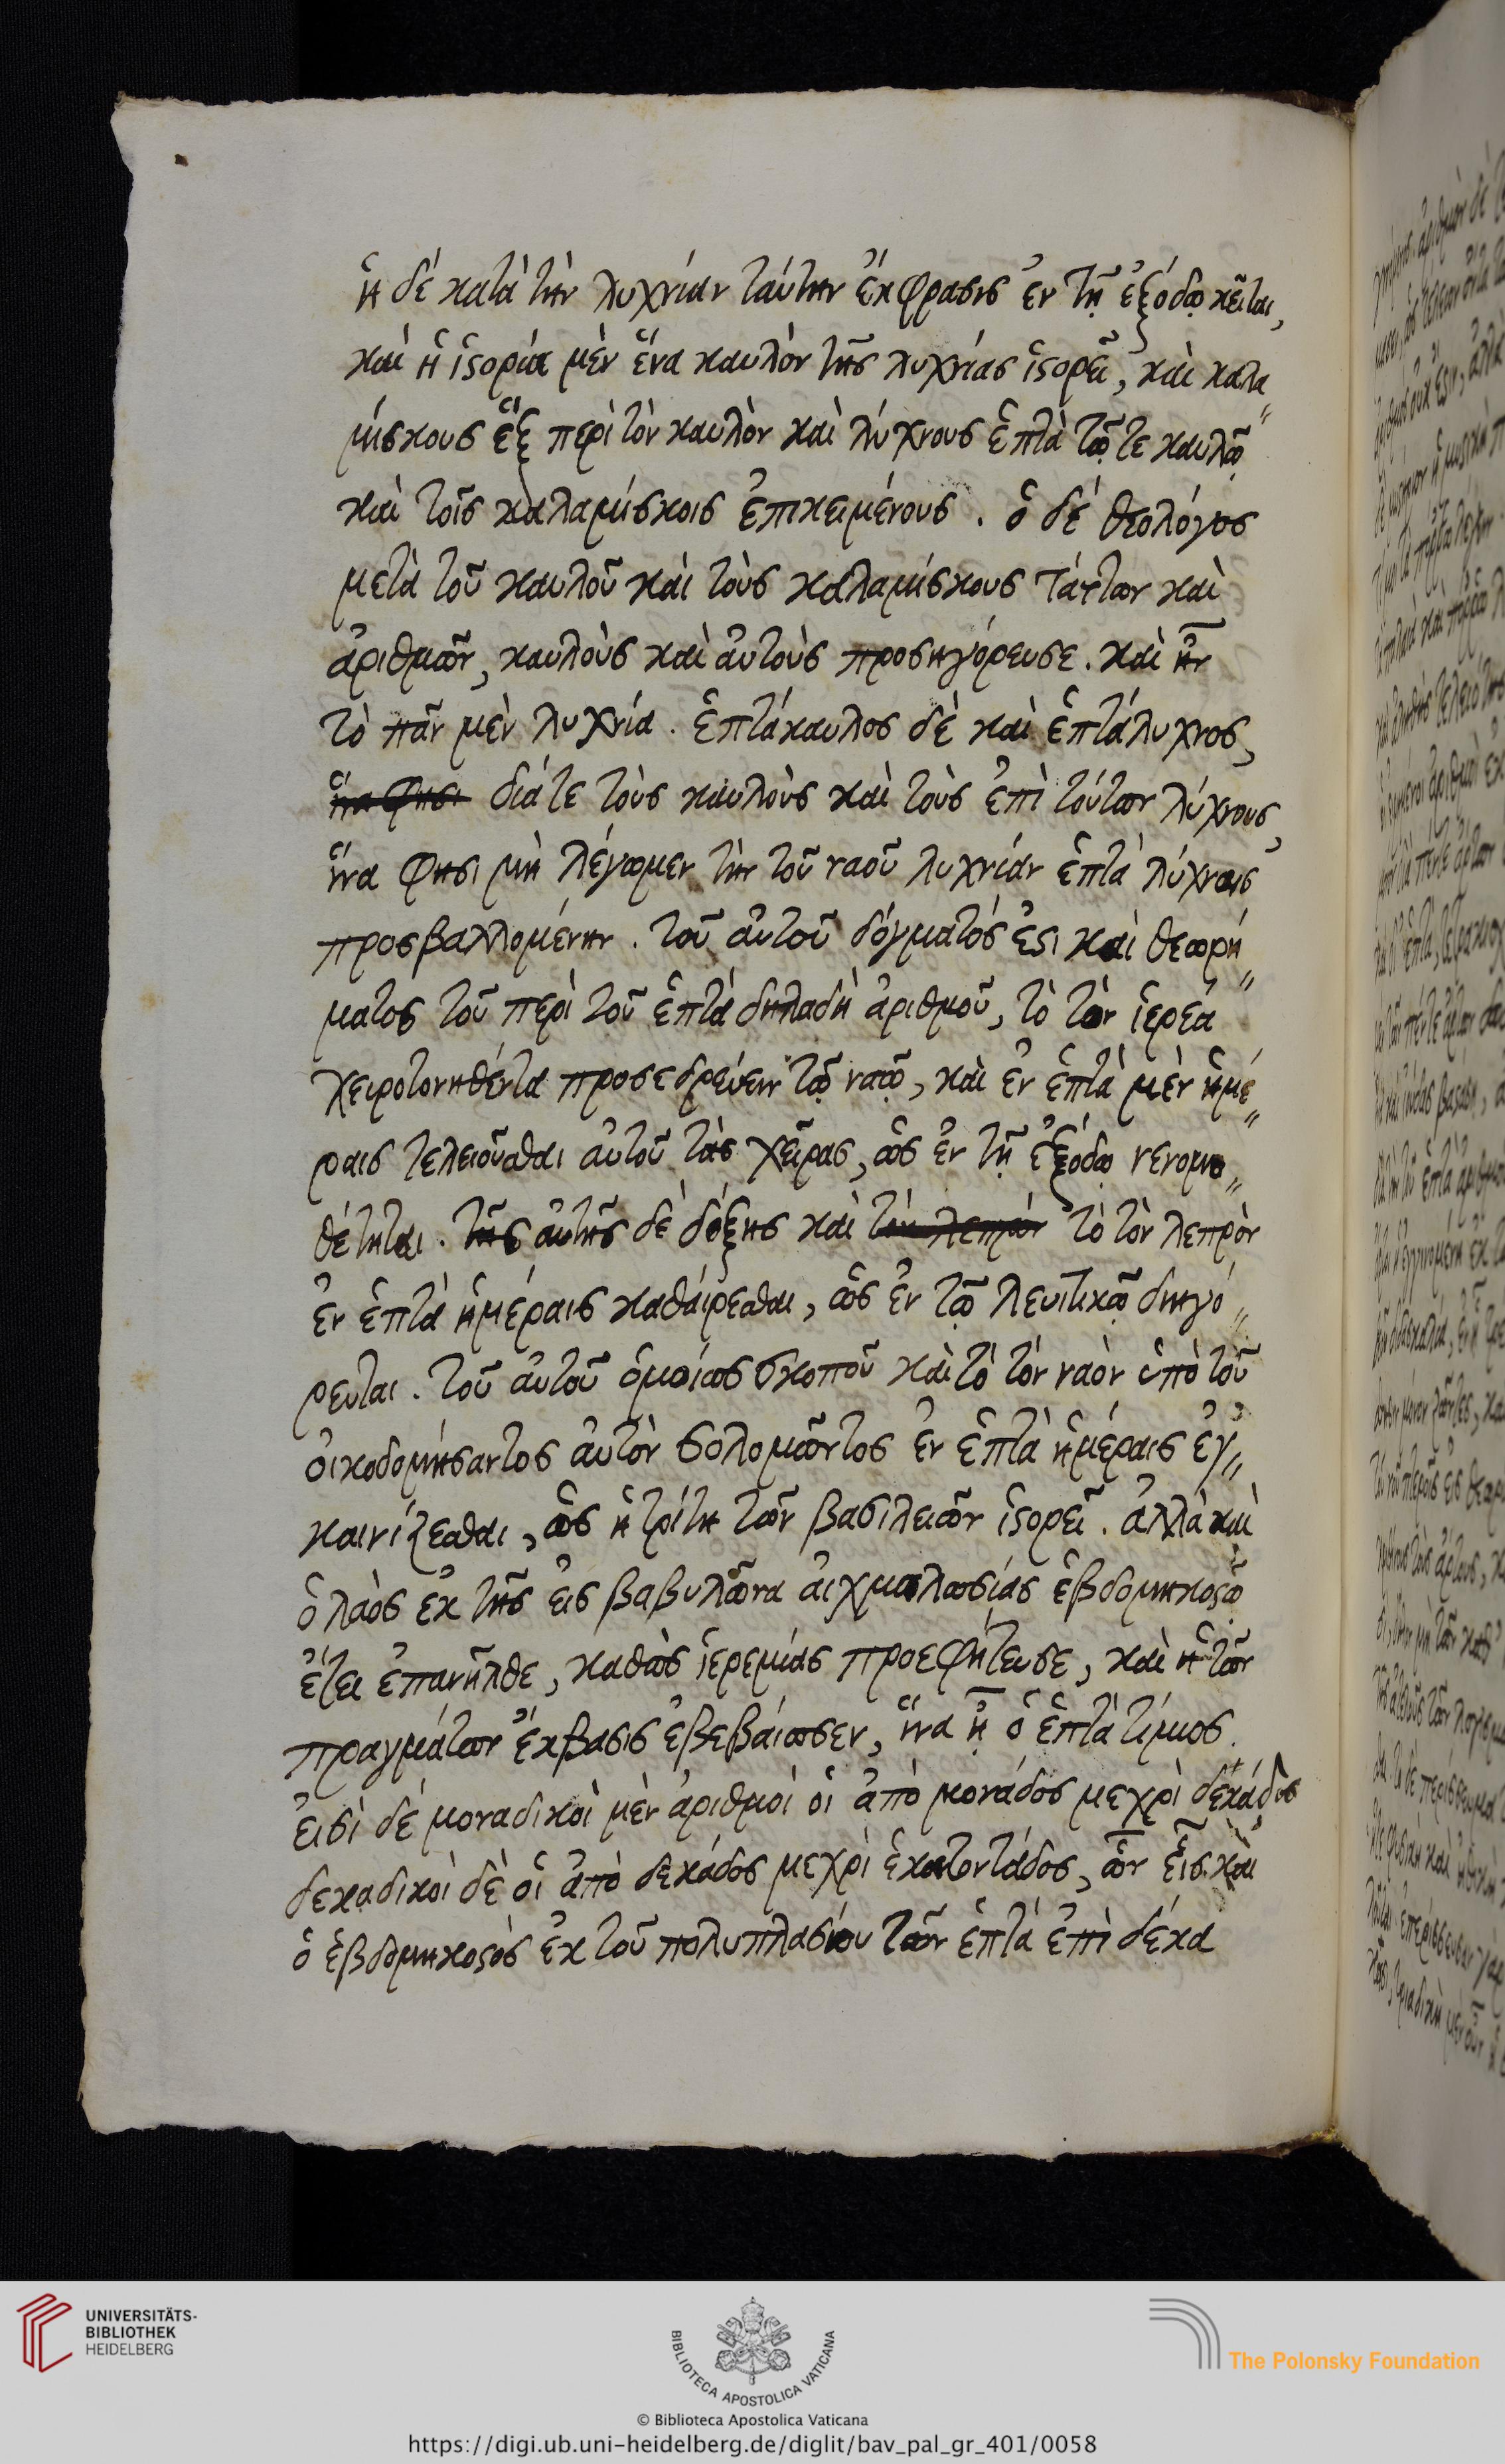 ἡ δὲ κατὰ τὴν λυχνίαν ταύτην ἔκφρασις ἐν τῇ ἐξόδῳ κεῖται,
καὶ ἡ ἱστορία μὲν ἕνα καυλὸν τῆς λυχνίας ἱστορεῖ, καὶ καλα„
μίσκους ἓξ περὶ τὸν καυλὸν καὶ λύχνους ἑπτὰ τῷ τε καυλῷ
καὶ τοῖς καλαμίσκοις ἐπικειμένους. ὁ δὲ θεολόγος
μετὰ τοῦ καυλοῦ καὶ τοὺς καλαμίσκους τάττων καὶ
ἀριθμῶν, καυλοὺς καὶ αὐτοὺς προσηγόρευσε. καὶ ἦν
τὸ πᾶν μὲν λυχνία. ἑπτάκαυλος δὲ καὶ ἑπτάλυχνος,
ἵνα φησι διά τε τοὺς καυλοὺς καὶ τοὺς ἐπὶ τούτων λύχνους,
ἵνα φησι μὴ λέγωμεν τὴν τοῦ ναοῦ λυχνίαν ἑπτὰ λύχνοις
προσβαλλομένην. τοῦ αὐτοῦ δόγματός ἐστι καὶ θεωρή„
ματος τοῦ περὶ τοῦ ἑπτὰ δηλαδὴ ἀριθμοῦ, τὸ τὸν ἱερέα
χειροτονηθέντα προσεδρεύειν τῷ ναῷ, καὶ ἐν ἑπτὰ μὲν ἡμέ„
ραις τελειοῦσθαι αὐτοῦ τὰς χεῖρας, ὡς ἐν τῇ ἐξόδῳ νενομο„
θέτηται. τῆς αὐτῆς δὲ δόξης καὶ τὸν λεπρὸν τὸ τὸν λεπρὸν
ἐν ἑπτὰ ἡμέραις καθαίρεσθαι, ὡς ἐν τῷ λευιτικῷ διηγό„
ρευται. τοῦ αὐτοῦ ὁμοίως σκοποῦ καὶ τὸ τὸν ναὸν ὑπὸ τοῦ
οἰκοδομήσαντος αὐτὸν σολομῶντος ἐν ἑπτὰ ἡμέραις ἐγ„
καινίζεσθαι, ὡς ἡ τρίτη τῶν βασιλειῶν ἱστορεῖ. ἀλλὰ καὶ
ὁ λαὸς ἐκ τῆς εἰς βαβυλῶνα αἰχμαλωσίας ἑβδομηκοστῷ
ἔτει ἐπανῆλθε, καθὼς ἱερεμίας προεφήτευσε, καὶ ἡ τῶν
πραγμάτων ἔκβασις ἐβεβαίωσεν, ἵνα ᾖ ὁ ἑπτὰ τίμιος.
εἰσὶ δὲ μοναδικοὶ μὲν ἀριθμοὶ οἱ ἀπὸ μονάδος μεχρὶ δεκάδος
δεκαδικοὶ δὲ οἱ ἀπὸ δεκάδος μεχρὶ ἑκατοντάδος, ὧν εἷς καὶ
ὁ ἑβδομηκοστὸς ἐκ τοῦ πολυπλασίου τῶν ἑπτὰ ἐπὶ δέκα
UNIVERSITÄTS-
BIBLIOTHEK
HEIDELBERG
BIBLIOTECA APOSTOLICA VATICANA
The Polonsky Foundation
© Biblioteca Apostolica Vaticana
https://digi.ub.uni-heidelberg.de/diglit/bav_pal_gr_401/0058